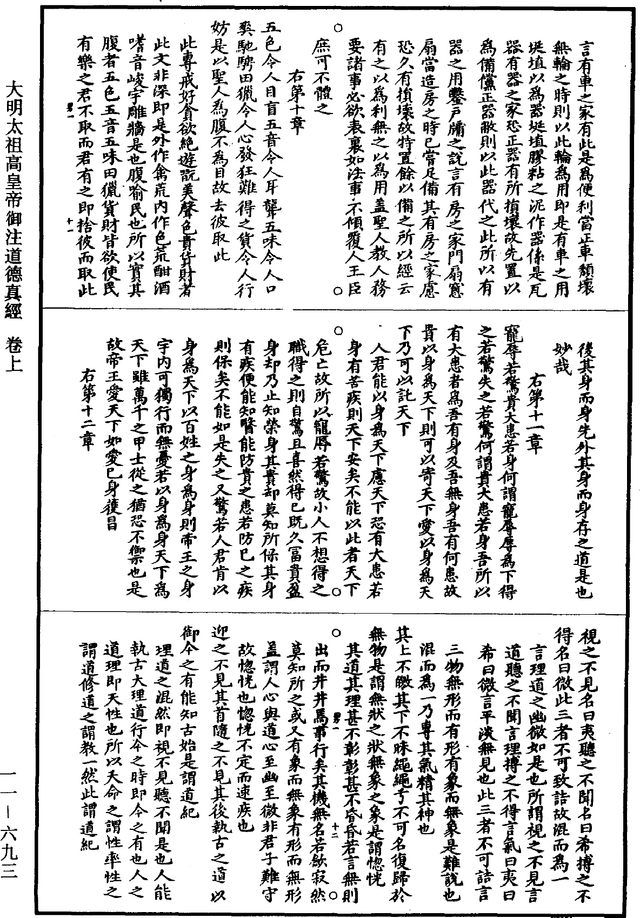 大明太祖高皇帝御注道德真經 卷上
一一－六九三
言有車之家有此是為便利當正車頹壞
無輪之時則以此輪為用即是有車之用
埏埴以為器埏埴膠粘之泥作器係是瓦
器有器之家恐正器有所損壞故先置以
為備儻正器敝則以此器代之此所以有
器之用鑿戶牖之說言有房之家門扇窻
扇當造房之時已嘗足備其有房之家慮
恐久有損壞故特置餘以備之所以經云
有之以為利無之以為用蓋聖人教人務
要諸事必欲表裏如法事不傾覆人王臣
庶可不體之
右第十章
五色令人目盲五音令人耳聾五味令人口
爽馳騁田獵令人心發狂難得之貨令人行
妨是以聖人為腹不為目故去彼取此
此專戒好貪欲絕遊翫美聲色貴貨財者
此文非深即是外作禽荒內作色荒酣酒
嗜音峻宇雕牆是也腹喻民也所以實其
腹者五色五音五味田獵貨財皆欲使民
有樂之君不取而君有之即捨彼而取此
十一
後其身而身先外其身而身存之道是也
妙哉
右第十一章
寵辱若驚貴大患若身何謂寵辱辱為下得
之若驚失之若驚何謂貴大患若身吾所以
有大患者為吾有身及吾無身吾有何患故
貴以身為天下則可以寄天下愛以身為天
下乃可以託天下
人君能以身為天下慮天下恐有大患若
身有苦疾則天下安矣不能以此者天下
危亡故所以寵辱若驚故小人不想得之
職得之則自驚且喜然得已既久富貴盈
身却乃止知榮身其貴却莫知所保其身
有疾便能知醫能防貴之患若防己之疾
則保矣不能如是失之又驚若人君肯以
身為天下以百姓之身為身則帝王之身
宇內可獨行而無憂若以身為身天下為
天下雖萬千之甲士從之猶恐不禦也是
故帝王愛天下如愛己身獲昌
右第十二章
視之不見名曰夷聽之不聞名曰希搏之不
得名曰微此三者不可致詰故混而為一
言理道之幽微如是也所謂視之不見言
道聽之不聞言理搏之不得言氣曰夷曰
希曰微言平淡無見也此三者不可詰言
三物無形而有形有象而無象是難說也
混而為一乃專其氣精其神也
其上不皦其下不昧繩繩兮不可名復歸於
無物是謂無狀之狀無象之象是謂惚恍
其道其理甚不彰彰甚不昏昏若言無則
十二
出而井井焉事行矣其機無名若飲寂然
莫知所之或又有象而無象有形而無形
蓋謂人心與道心至幽至微非君子難守
故惚恍也惚恍不定而速疾也
迎之不見其首隨之不見其後執古之道以
御今之有能知古始是謂道紀
理道之混然即視不見聽不聞是也人能
執古大理道行今之時即今之有也人之
道理即天性也所以天命之謂性率性之
謂道修道之謂教一然此謂道紀